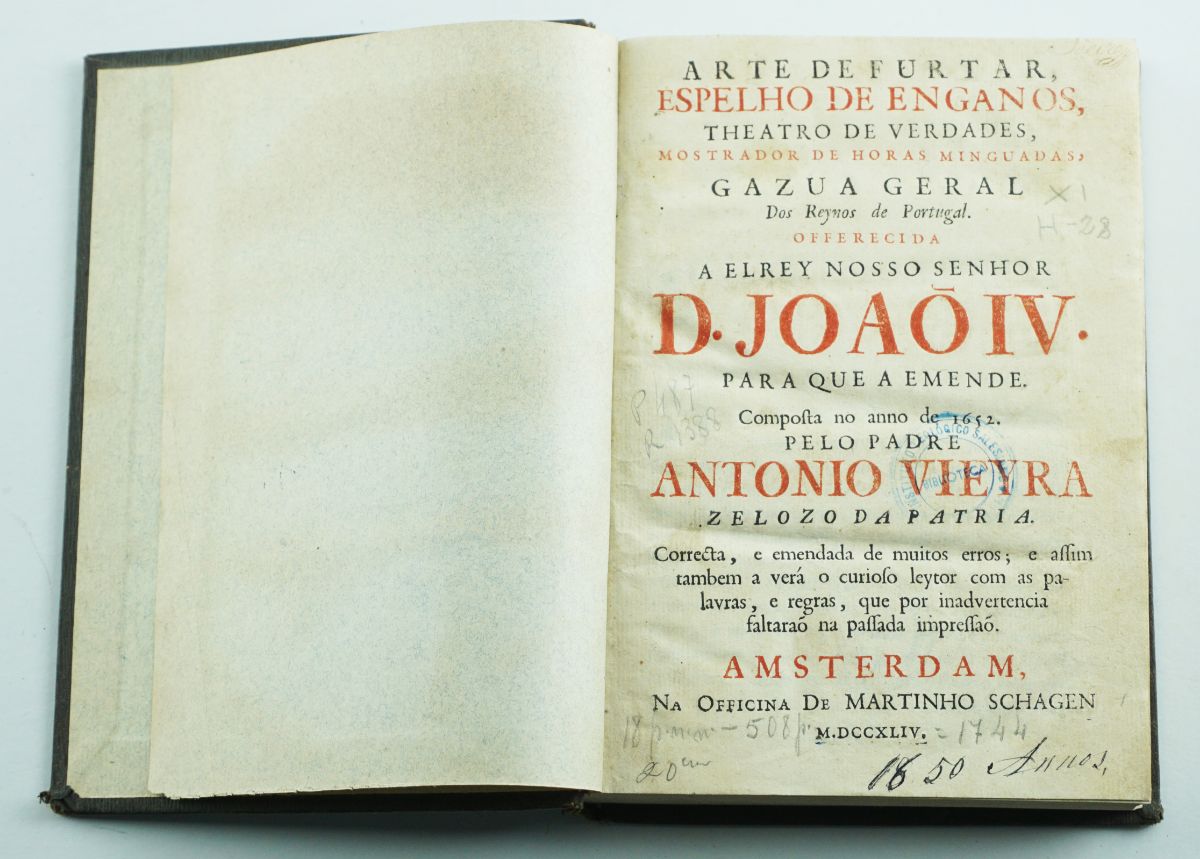 ARTE DE FURTAR,
ESPELHO DE ENGANOS,
THEATRO DE VERDADES,
MOSTRADOR DE HORAS MINGUADAS,
GAZUA GERAL
Dos Reynos de Portugal.
OFFERECIDA
A ELREY NOSSO SENHOR
D. JOAÕ IV.
PARA QUE A EMENDE.
Compoſta no anno de 1652.
PELO PADRE
ANTONIO VIEYRA
ZELOZO DA PATRIA.
Correcta, e emendada de muitos erros; e aſſim
tambem a verá o curioſo leytor com as pa-
lavras, e regras, que por inadvertencia
faltaraõ na paſſada impreſſaõ.
AMSTERDAM,
NA OFFICINA DE MARTINHO SCHAGEN
M.DCCXLIV. = 1744
XI
H-28
P 487
R 1388
BIBLIOTECA
508 p.
20 cm
1850 Annos,